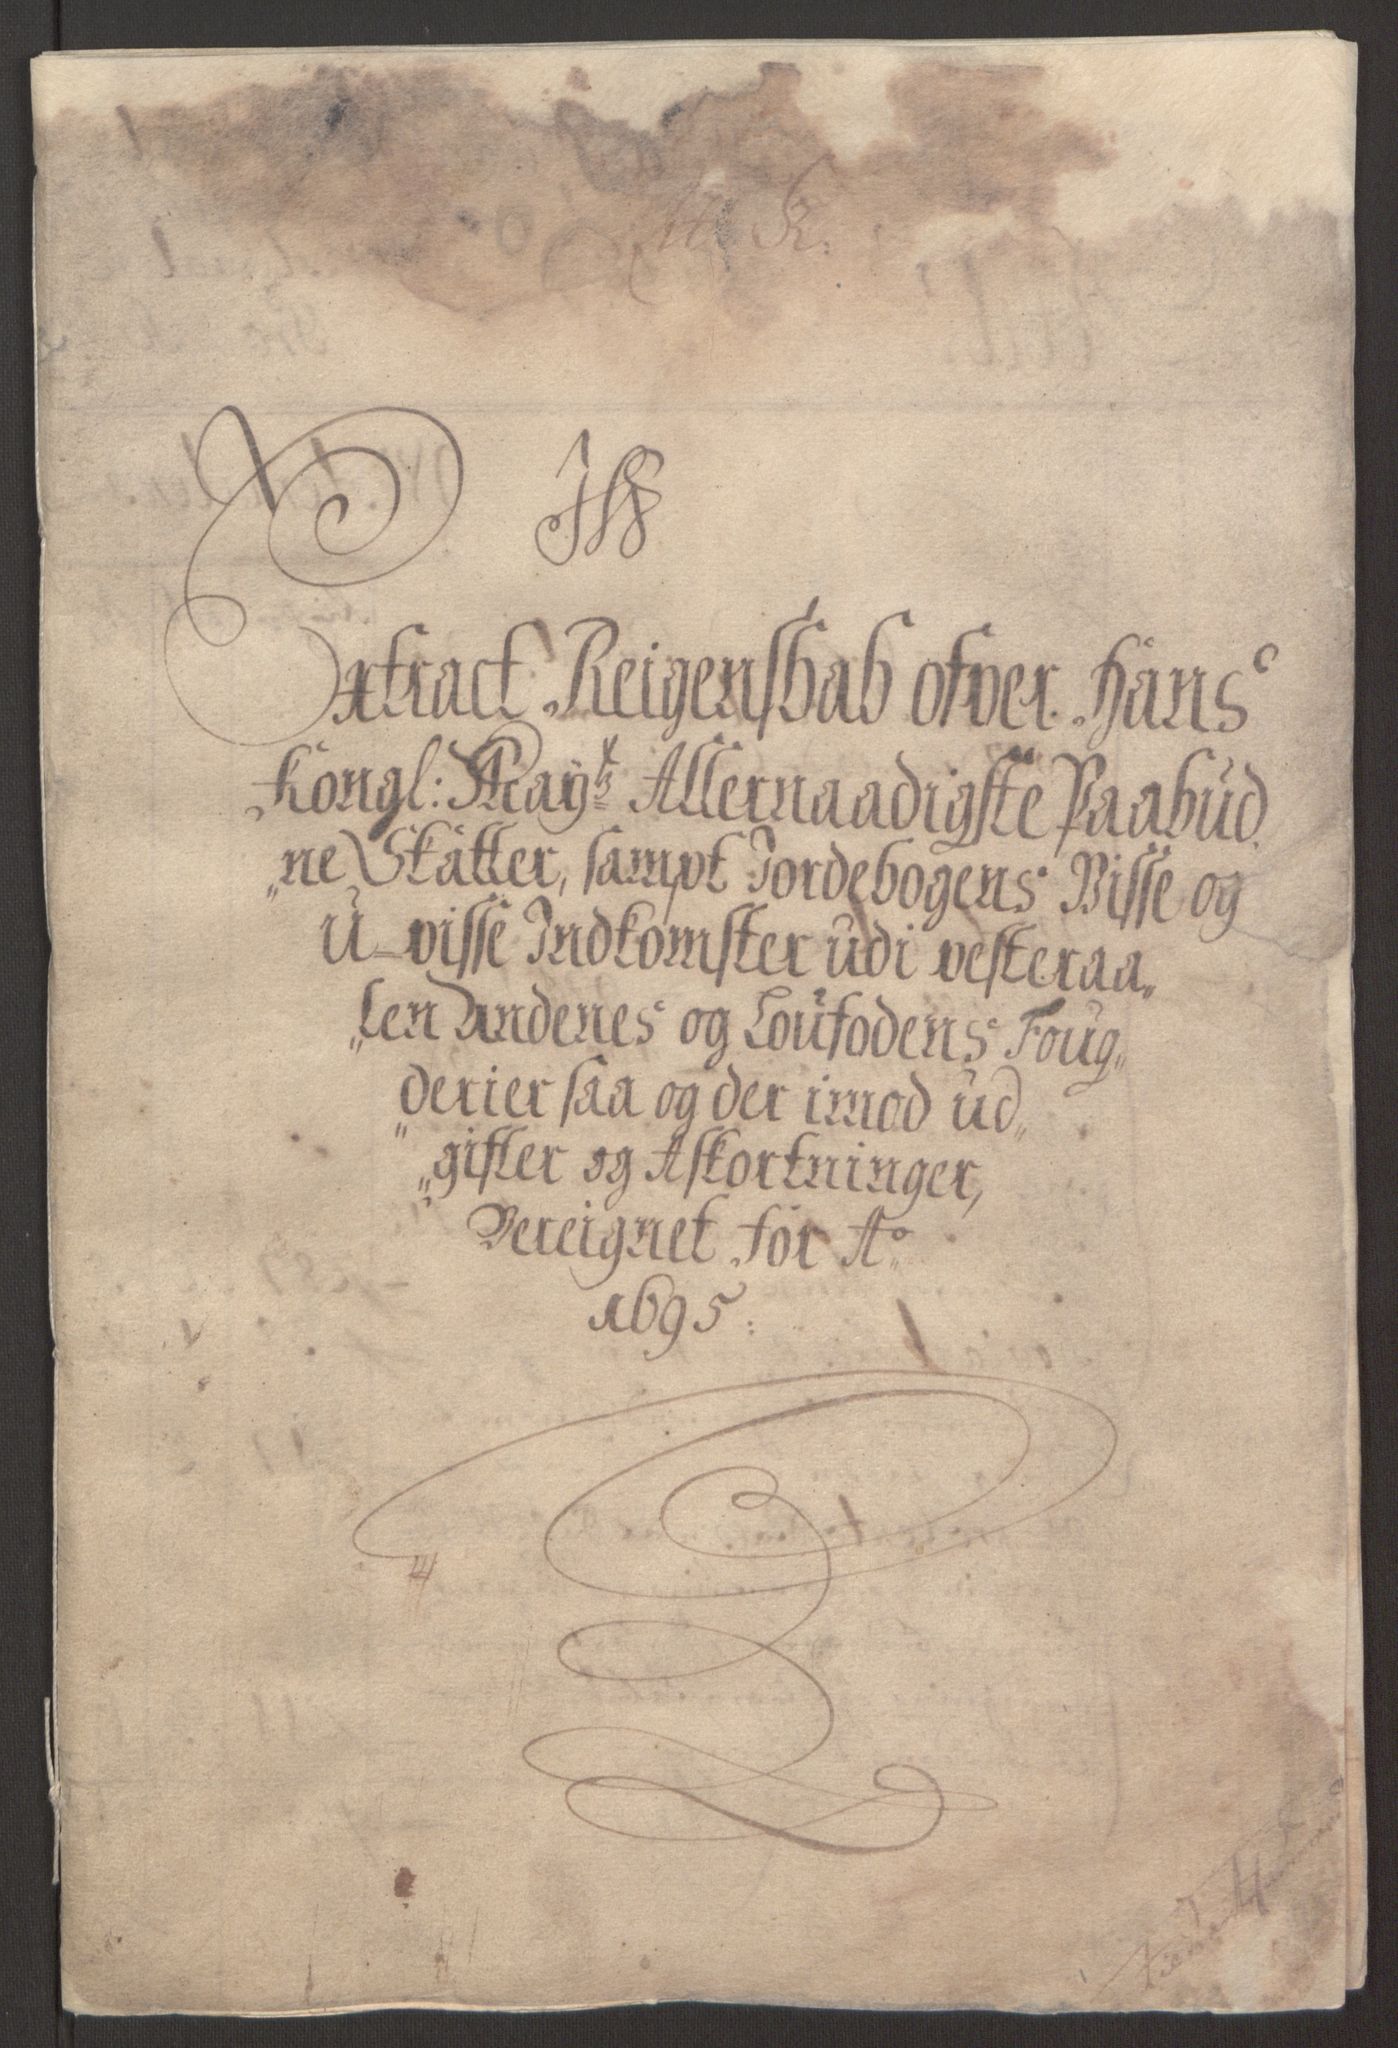 Extract Reigenskab ofver Hans
Kongl: Mayts Allernaadigste Paabud„
„ne Skatter, sampt Jordebogens Visse og
U-visse Indkomster udi vesteraa„
„len Andenes og Loufodens Foug„
„derier saa og der imod ud„
„gifter og Afkortninger,
Bereignet for Ao
1695: